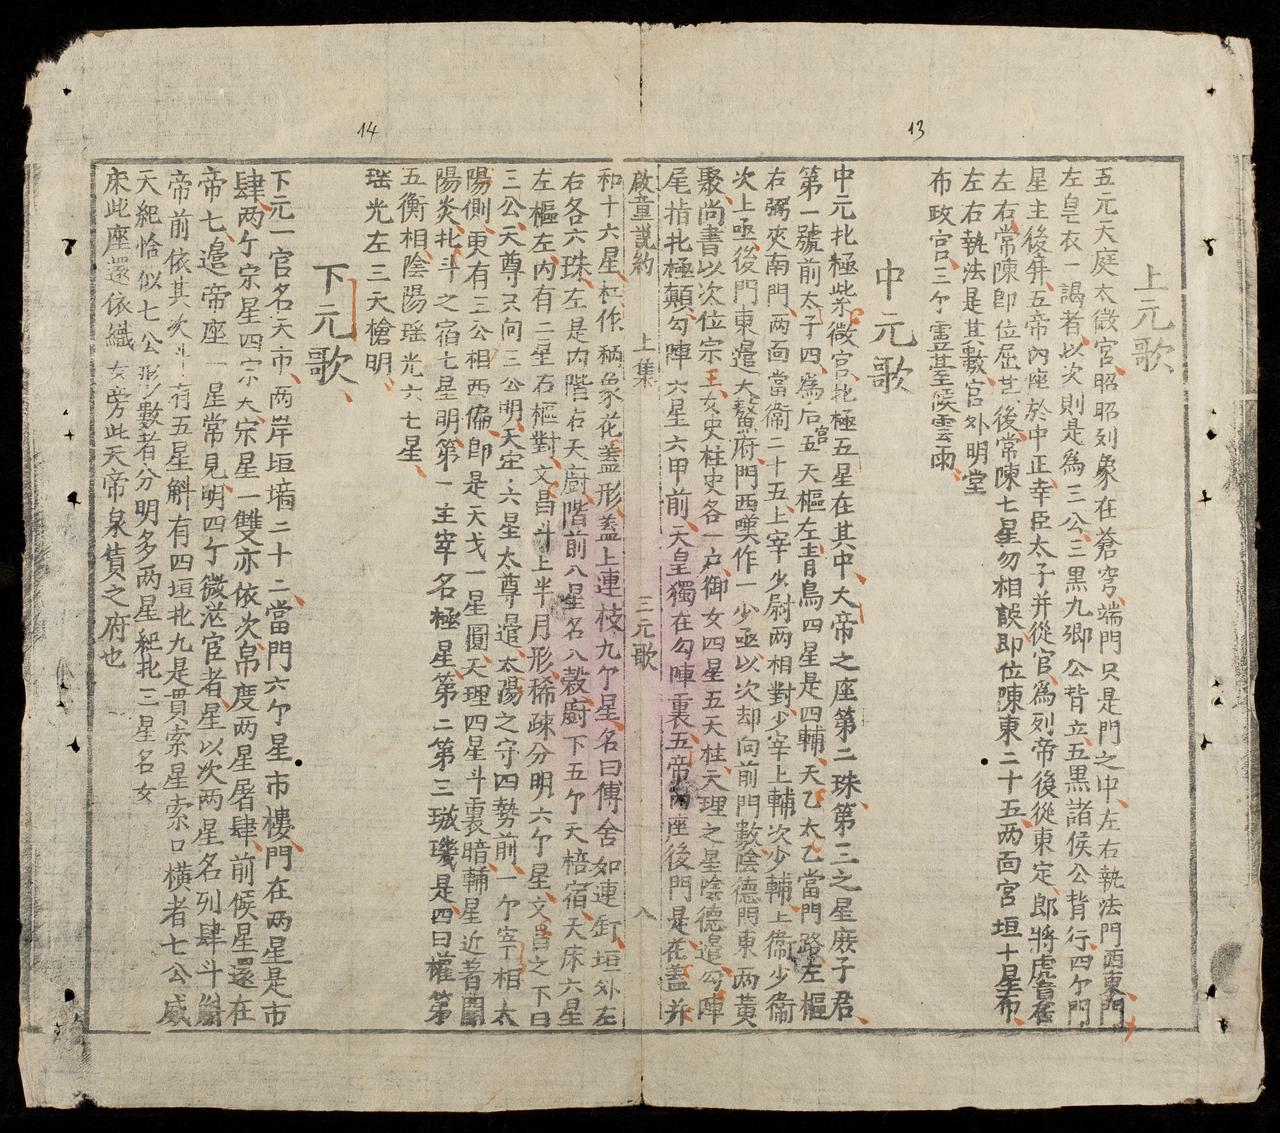 13
上元歌
五元天庭太微宮昭昭列象在蒼穹端門只是門之中左右執法門西東門
左皂衣一謁者以次則是為三公三黑九卿公背立五黑諸侯公背行四个門
星主後屏五帝內座於中正幸臣太子并從官為列帝後從東定郎將虎賁居
左右常陳郎位居其後常陳七星勿相誤郎位陳東二十五两面宮垣十星布
左右執法是其數宮外明堂
布政宮三个靈䑓候雲雨
中元歌
中元北極紫微宮北極五星在其中大帝之座第二珠第三之星庶子君
第一號前太子四為后宮五天樞左青鳥四星是四輔天乙太乙當門路左樞
右弼夾南門两面當衛二十五上宰少尉两相對少宰上輔次少輔上衛少衛
次上丞後門東邊大贊府門西喚作一少丞以次却向前門數陰德門東两黃
聚尚書以次位宗王女史柱史各一户御女四星五天柱天理之星陰德邊勾陣
尾指北極顛勾陣六星六甲前天皇獨在勾陣裏五帝內座後門是花盖并
啟童說約 上集 三元歌 八
14
和十六星杠作柄象花盖形盖上連枝九个星名曰傳舍如連釘垣外左
右各六珠左是内階右天廚階前八星名八穀廚下五个天棓宿天床六星
左樞左内有二星右樞對文昌斗上半月形稀疎分明六个星文昌之下曰
三公天尊只向三公明天牢六星太尊邊太陽之守四勢前一个宰相太
陽側更有三公相西偏即是天戈一星圓天理四星斗裏暗輔星近著闓
陽炎北斗之宿七星明第一主宰名極星第二第三璇璣是四曰權第
五衡相陰陽瑶光六七星
瑶光左三天槍明
下元歌
下元一宮名天市两岸垣墻二十二當門六个星市樓門在两星是市
肆两个宗星四宗大宗星一雙亦依次帛度两星屠肆前候星還在
帝七邉帝座一星常見明四个微茫宦者星以次两星名列肆斗斛
帝前依其次斗有五星斛有四垣北九是貫索星索口橫者七公咸
天紀恰似七公形數者分明多两星紀北三星名女
床此座還依織女旁此天帝泉貨之府也